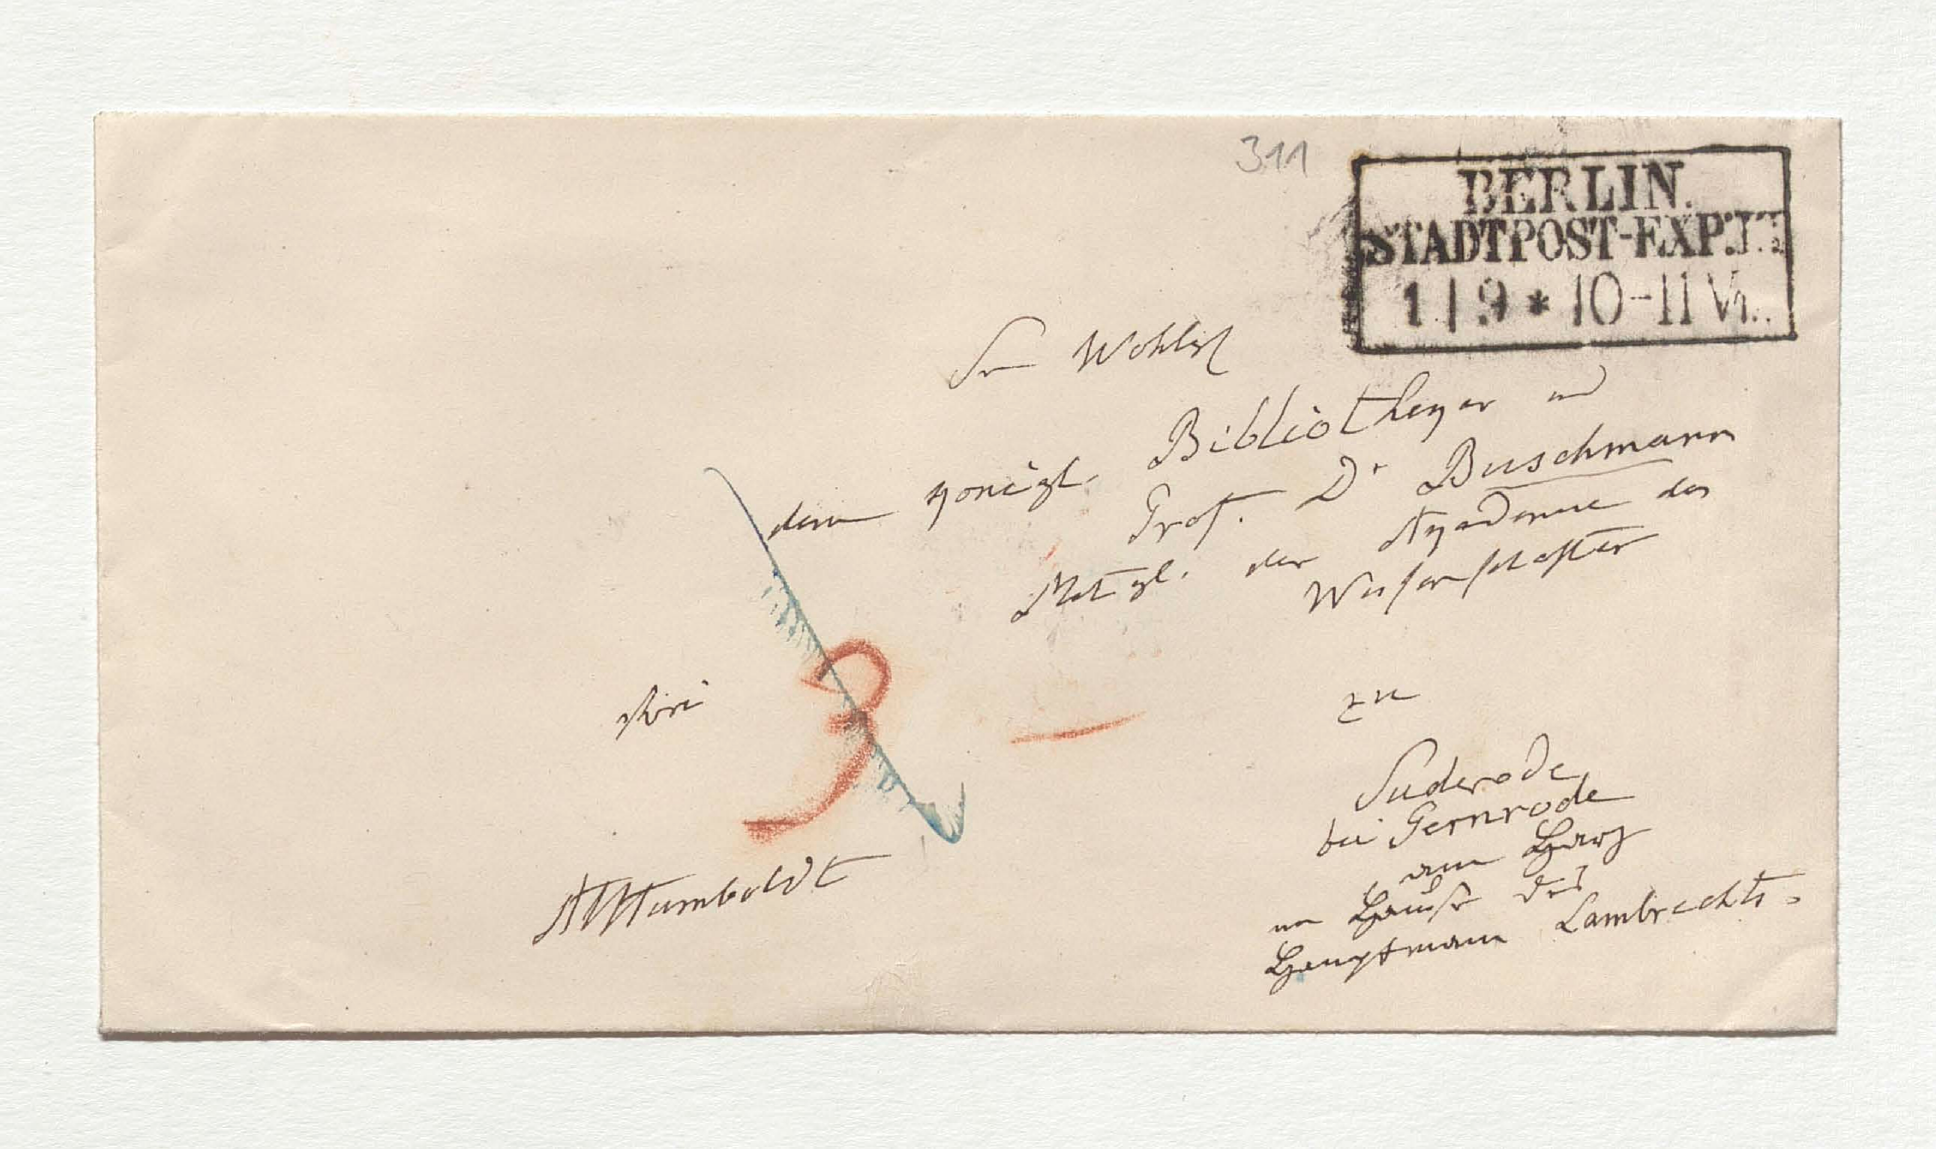 311
BERLIN.
STADTPOST-EXP.
1 | 9 * 10-11 V
Sr Wohlg
dem königl. Bibliothekar und
Prof. Dr Buschmann
Mitgl. der Akademie der
Wissenschaften
frei
3
zu
Suderode
bei Gernrode
am Harz
im Hause des
Hauptmann Lambrechts.
AvHumboldt